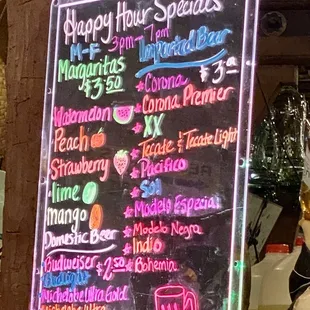 Happy Hour Specials
M-F 3pm-7pm
Margaritas
$3.50
Watermelon
Peach
Strawberry
lime
mango
Domestic Beer
Budweiser $2.50
Budlight
Michelobe Ultra Gold
Ultra
Imported Beer
$3.
*Corona
*Corona Premier
*XX
*Tecate & Tecate Light
*Pacifico
*Sol
*Modelo Especial
*Modelo Negra
*Indio
*Bohemia